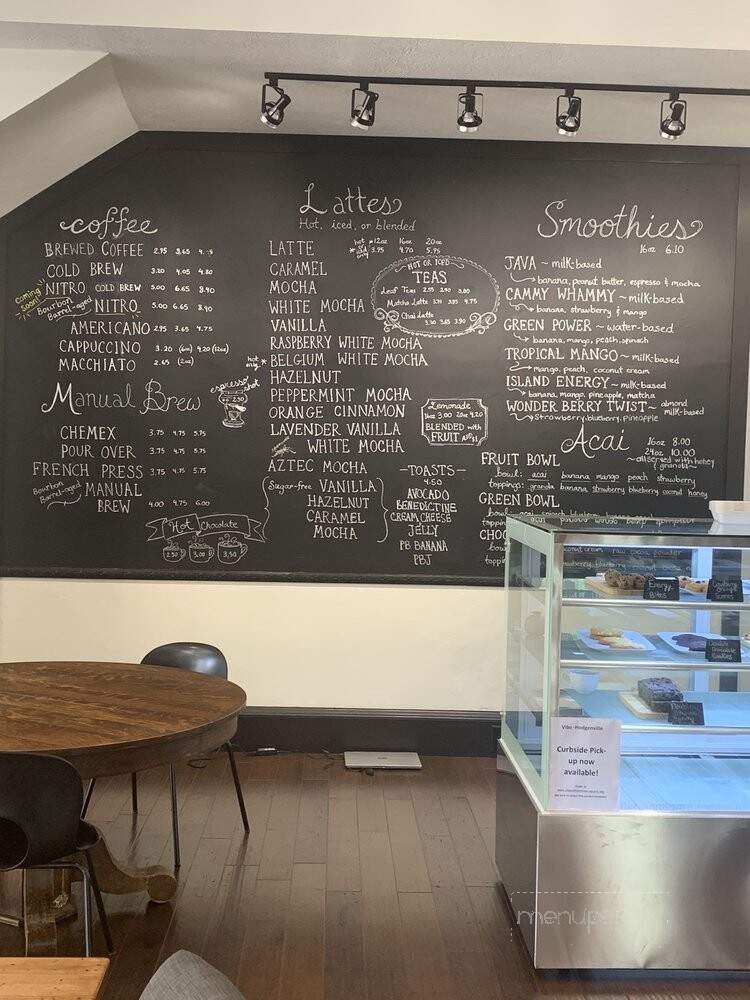 coffee
BREWED COFFEE 2.95 3.65
COLD BREW 3.20 4.05 4.80
coming soon!
NITRO COLD BREW 5.00 6.65 8.40
Bourbon Barrel-aged NITRO 5.00 6.65 8.40
AMERICANO 2.95 3.65 4.75
CAPPUCCINO 3.20 (6oz) 4.20 (12oz)
MACCHIATO 2.65 (2oz)
espresso shot
2.50
Manual Brew
CHEMEX 3.75 4.75 5.75
POUR OVER 3.75 4.75 5.75
FRENCH PRESS 3.75 4.75 5.75
Bourbon Barrel-aged MANUAL
BREW 4.00 4.75 6.00
Hot Chocolate
2.50 3.00 3.50
Lattes
Hot, iced, or blended
hot only 12oz 16oz 20oz
LATTE 3.95 4.70 5.95
CARAMEL
MOCHA
WHITE MOCHA
VANILLA
RASPBERRY WHITE MOCHA
hot only * BELGIUM WHITE MOCHA
HAZELNUT
PEPPERMINT MOCHA
ORANGE CINNAMON
LAVENDER VANILLA
WHITE MOCHA
AZTEC MOCHA
Sugar-free VANILLA
HAZELNUT
CARAMEL
MOCHA
HOT OR ICED
TEAS
Leaf Teas 2.55 2.90 3.00
Matcha Latte 3.95 4.75
Chai Latte
3.30 3.65 3.90
Lemonade
16oz 3.00 20oz 4.20
BLENDED WITH
FRUIT
-TOASTS-
4.50
AVOCADO
BENEDICTINE
CREAM CHEESE
JELLY
PB BANANA
PBJ
Smoothies
16oz 6.10
JAVA ~ milk-based
banana, peanut butter, espresso & mocha
CAMMY WHAMMY ~ milk-based
banana, strawberry & mango
GREEN POWER ~ water-based
banana, mango, peach, spinach
TROPICAL MANGO ~ milk-based
mango, peach, coconut cream
ISLAND ENERGY ~ milk-based
banana, mango, pineapple, matcha
WONDER BERRY TWIST ~ almond milk-based
strawberry, blueberry, pineapple
Acai
16oz 8.00
24oz 10.00
~all served with honey & granola~
FRUIT BOWL
bowl: acai banana mango peach strawberry
toppings: granola banana strawberry blueberry coconut honey
GREEN BOWL
bowl: acai spinach
toppings
CHOC
bowl coconut cream raw cocoa powder
topping
Energy Bites
Cranberry Orange Scones
Double Chocolate Cookies
Vibe-Hodgenville
Curbside Pick-
up now
available!
menup